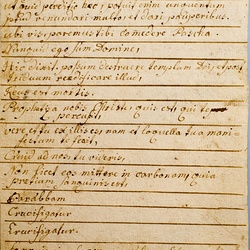 ut quid perditio hæc; potuit enim unguentum
istud venundari multo, et dari pauperibus.
ubi vis paremus tibi comedere Pascha.
Nunquid ego sum Domine;
Hic dixit possum destruere templum Dei et post
triduum reædificare illud;
Reus est mortis.
Prophetiza nobis Christe quis est qui te
percussit;
vere et tu ex illis es nam et loquella tua mani-
festum te facit;
Quid ad nos tu videris;
Non licet eos mittere in carbonam quia
pretium sanguinis est;
Barabbam
Crucifigatur
Crucifigatur.